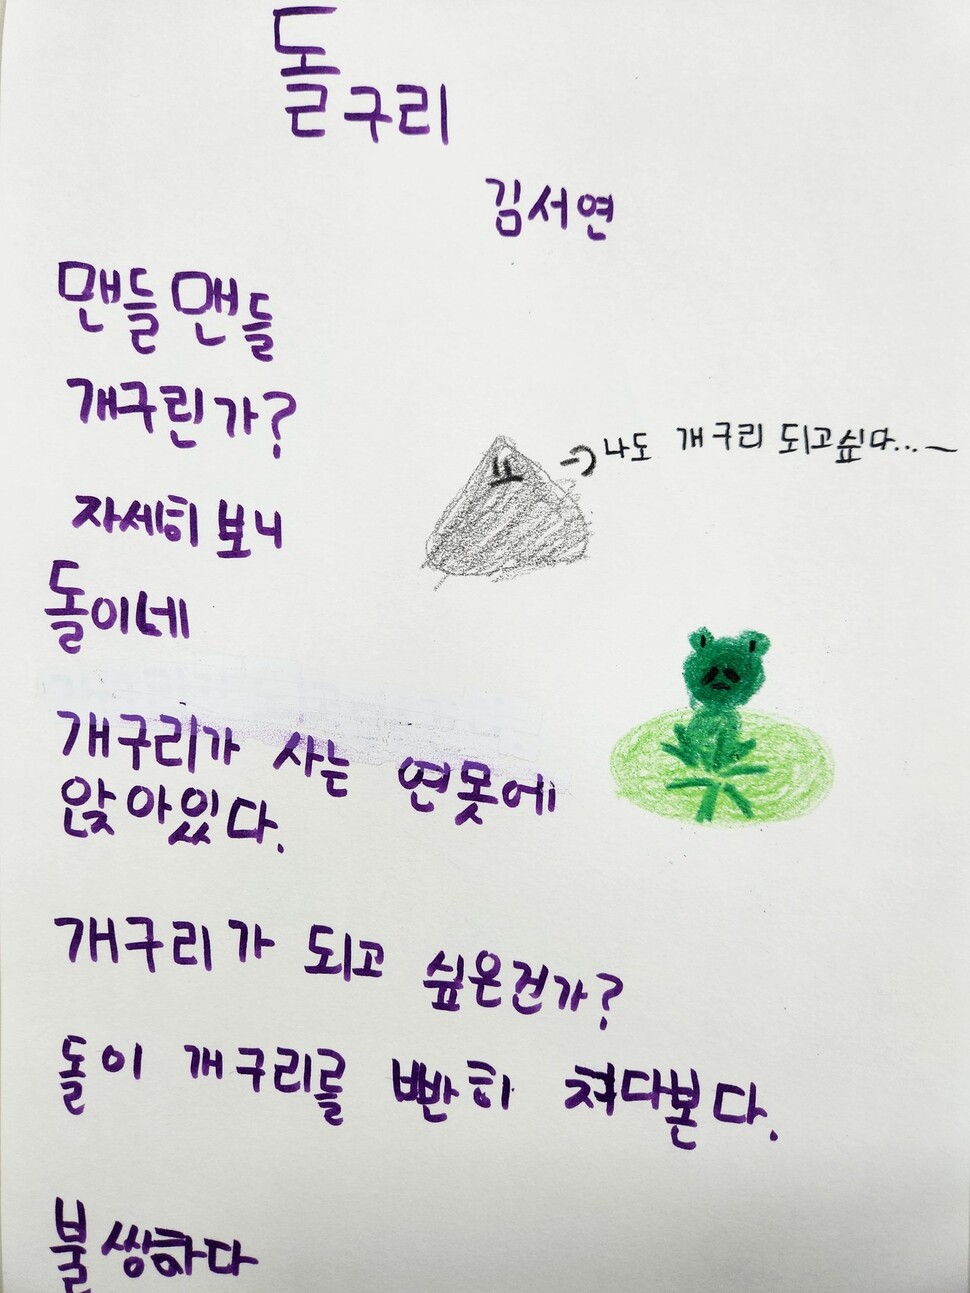 돌구리
김서연
맨들맨들
개구린가?
자세히 보니
돌이네
나도 개구리 되고싶다...~
개구리가 사는 연못에
앉아있다.
개구리가 되고 싶은건가?
돌이 개구리를 빤히 쳐다본다.
불쌍하다